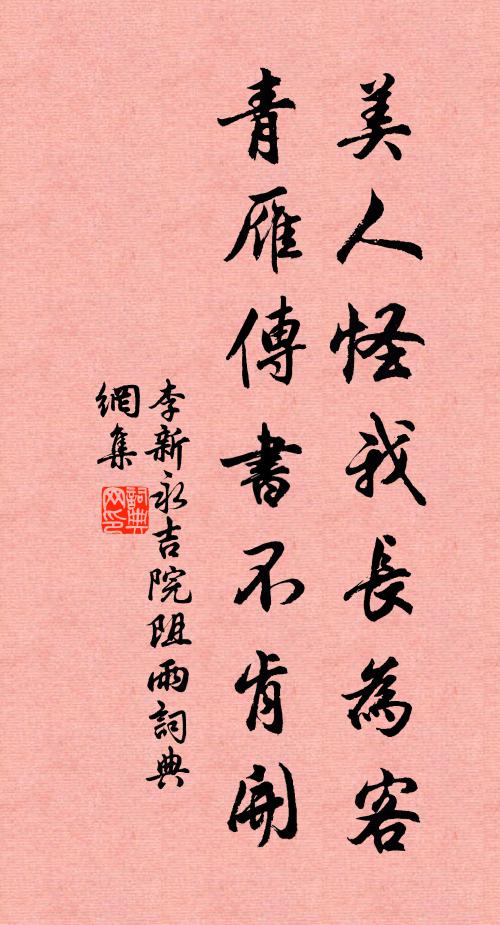 美人怪我長為客
青雁傳書不肯開
李新永吉院阻雨詞典
網集
詞典
网印